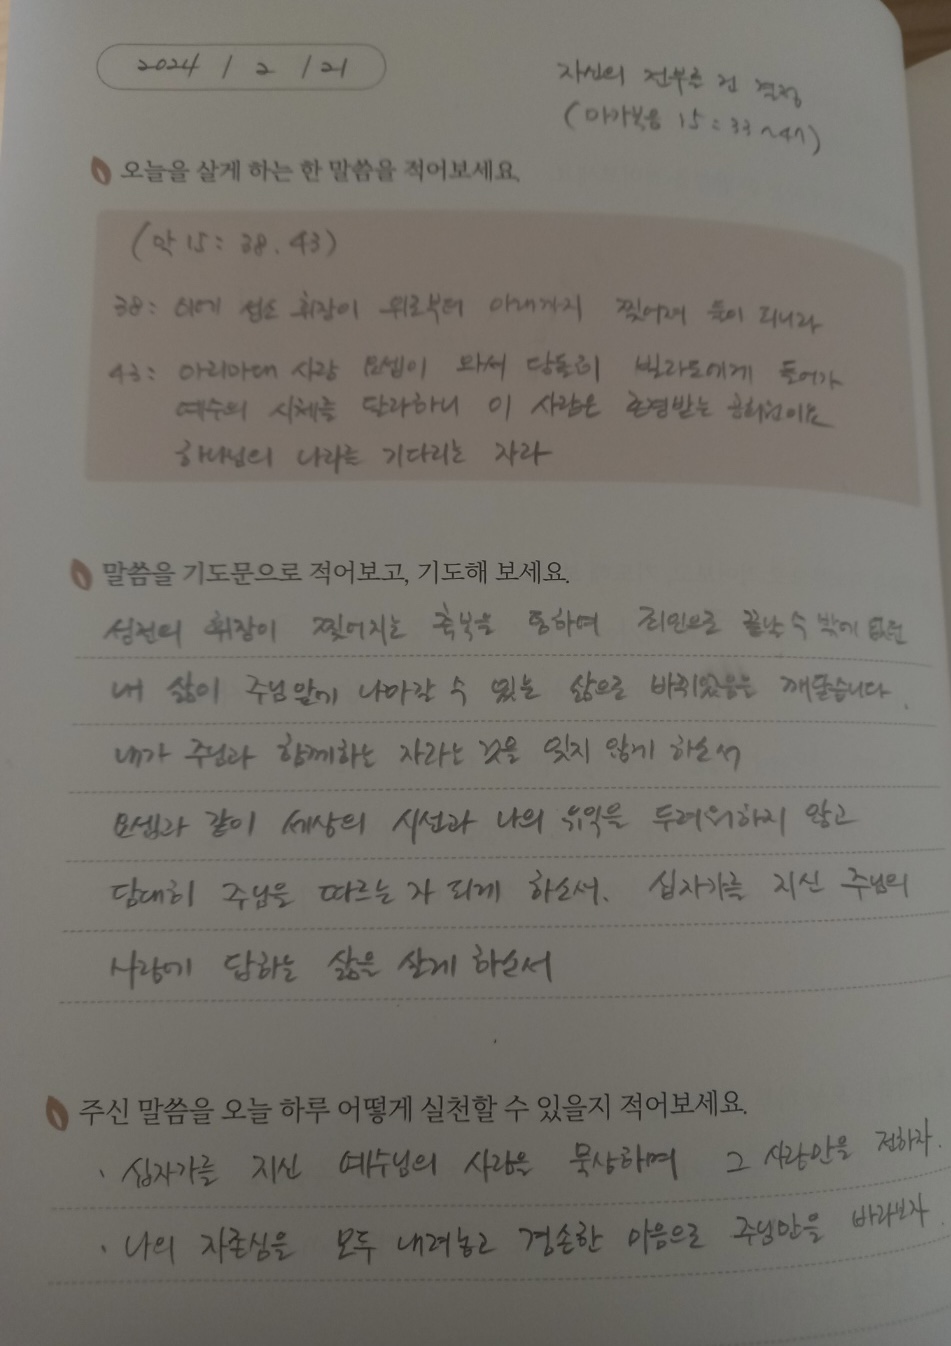 2024 / 2 / 21
자신의 전부를 건 결정
(마가복음 15:33~47)
오늘을 살게 하는 한 말씀을 적어보세요.
(막 15: 38. 43)
38: 이에 성소 휘장이 위로부터 아래까지 찢어져 둘이 되니라
43: 아리마대 사람 요셉이 와서 당돌히 빌라도에게 들어가
예수의 시체를 달라하니 이 사람은 존경받는 공회원이요
하나님의 나라를 기다리는 자라
말씀을 기도문으로 적어보고, 기도해 보세요.
성전의 휘장이 찢어지는 축복을 통하여 죄인으로 끝날 수 밖에 없던
내 삶이 주님앞에 나아갈 수 있는 삶으로 바뀌었음을 깨닫습니다.
내가 주님과 함께하는 자라는 것을 잊지 않게 하소서
요셉과 같이 세상의 시선과 나의 유익을 두려워하지 않고
담대히 주님을 따르는 자 되게 하소서. 십자가를 지신 주님의
사랑에 답하는 삶을 살게 하소서
주신 말씀을 오늘 하루 어떻게 실천할 수 있을지 적어보세요.
· 십자가를 지신 예수님의 사랑을 묵상하며 그 사랑만을 전하자.
· 나의 자존심을 모두 내려놓고 겸손한 마음으로 주님만을 바라보자.